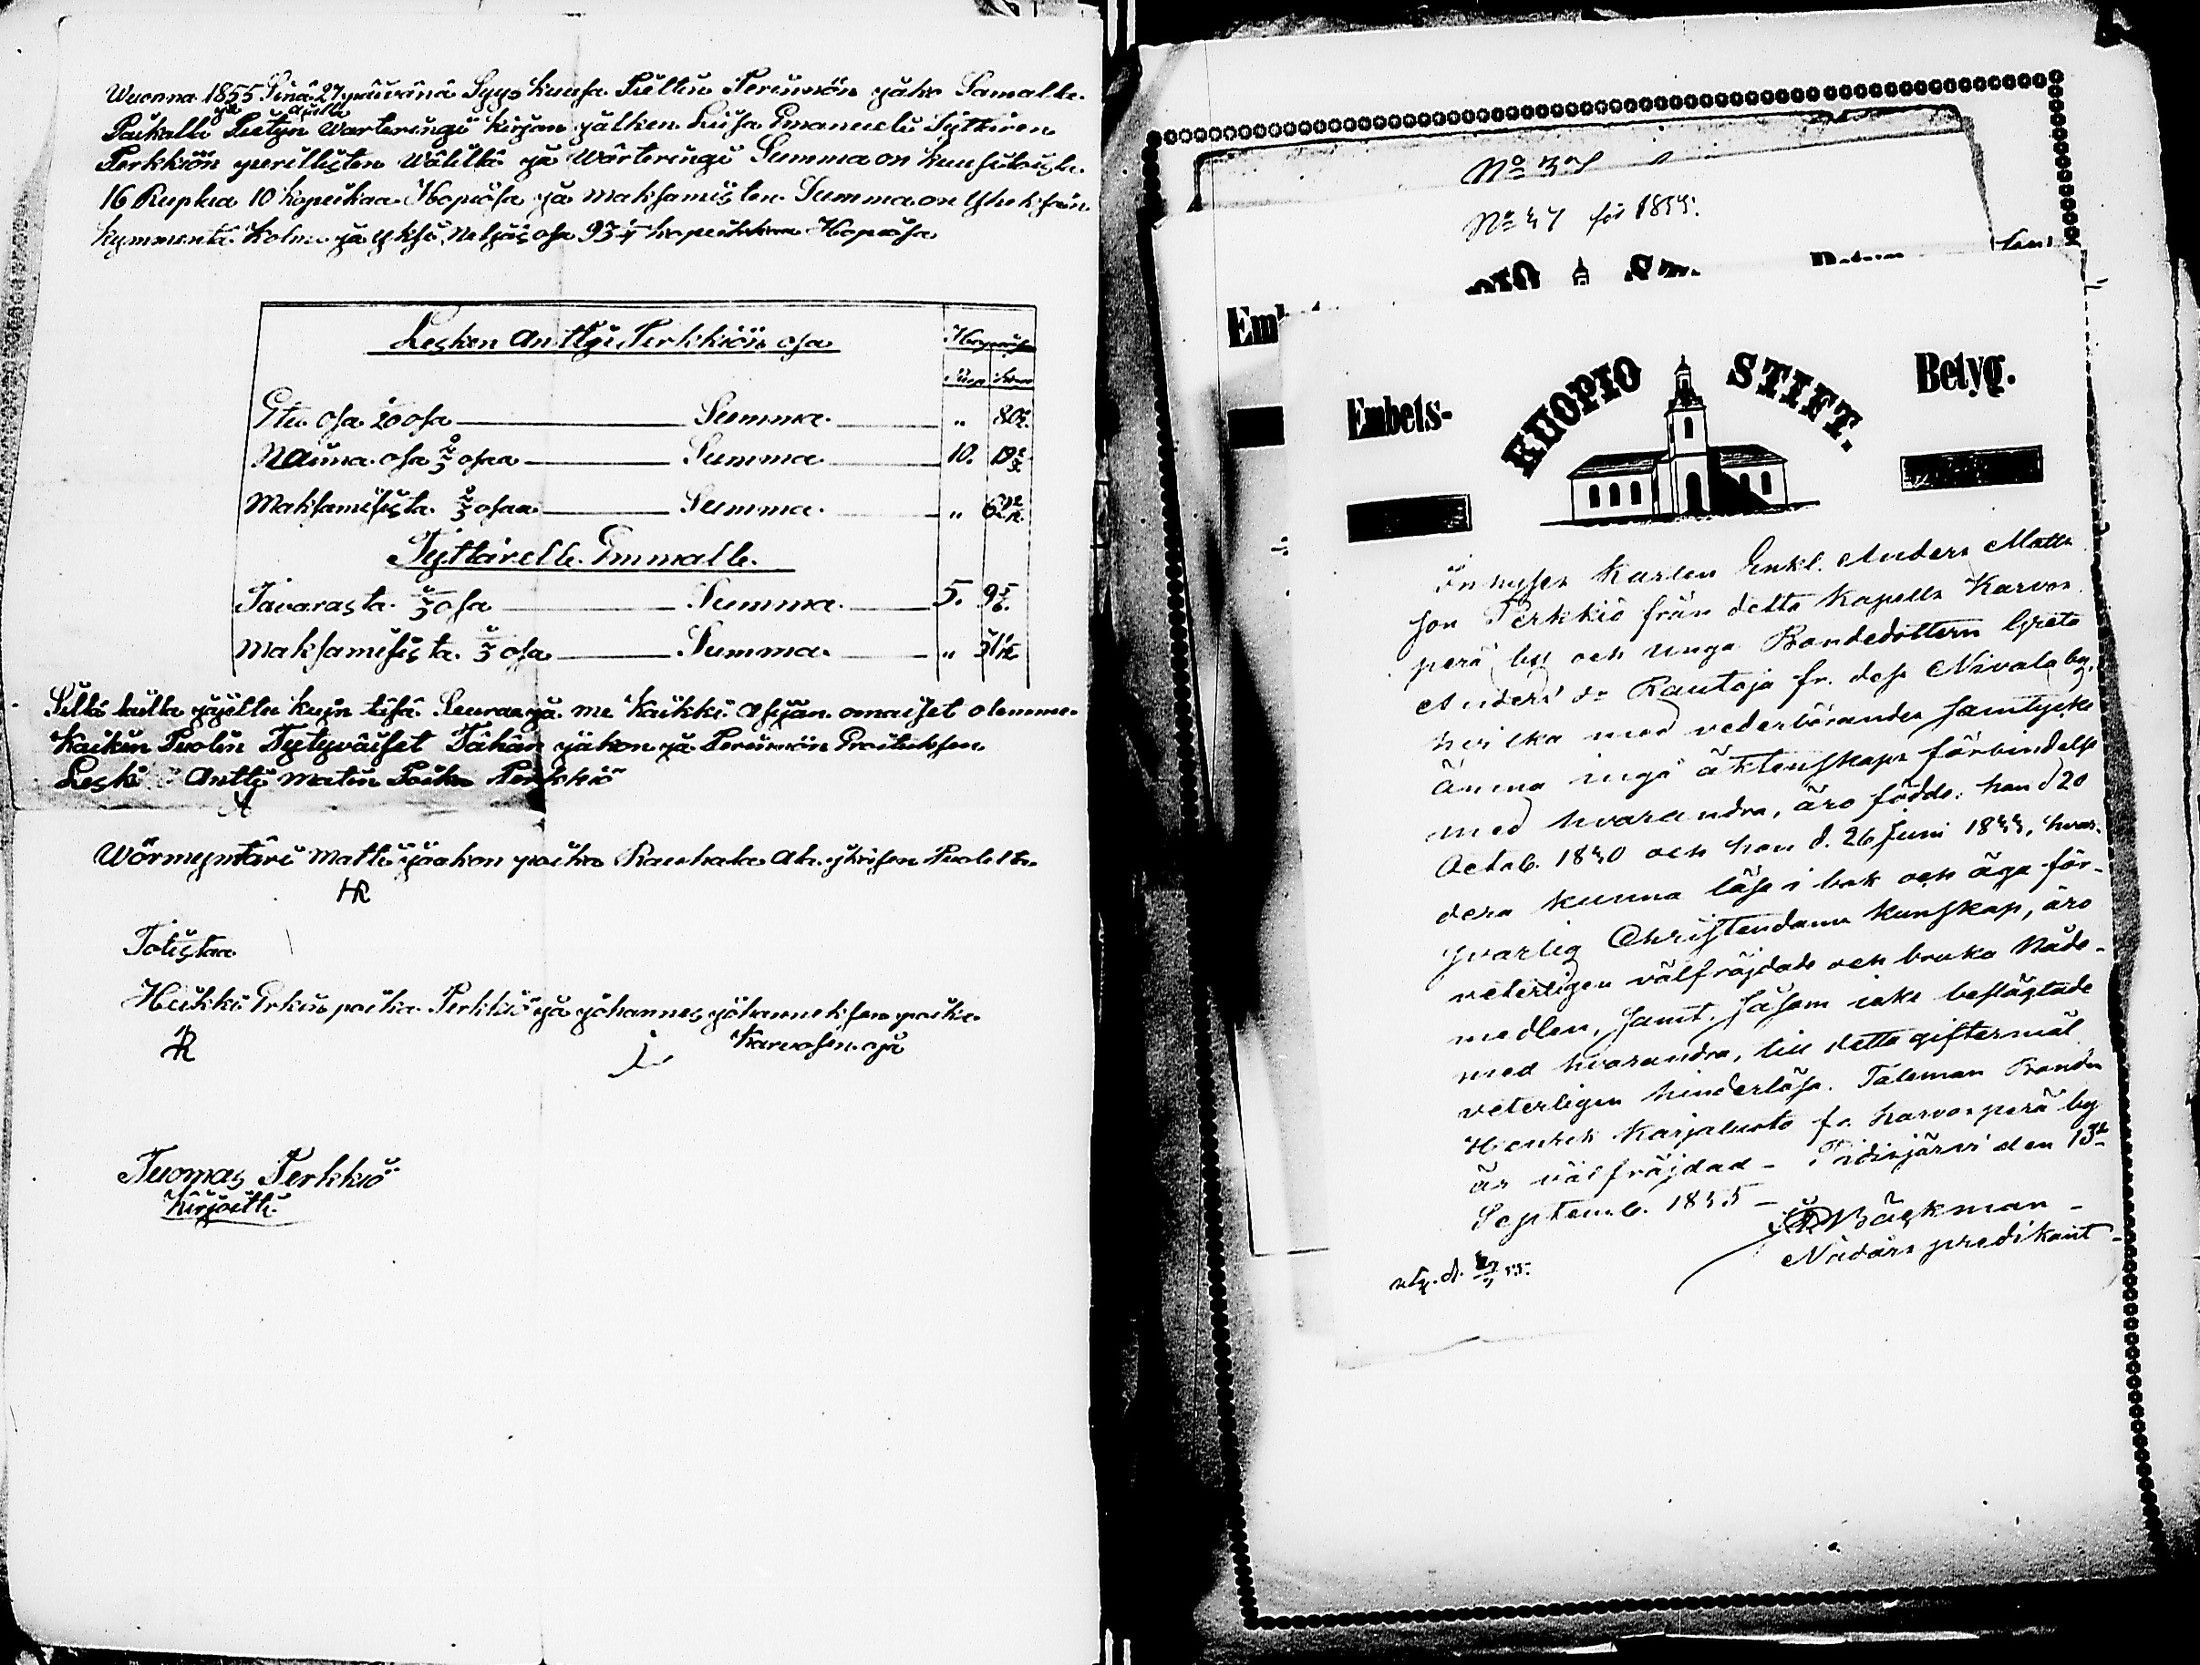 Wuonna 1855 Sinä 27 päivänä Syys Kuusa Piettin Perinnön jako Samalla
Paikalla ja Pietyn ajalla Warteringi Kirjan jälken Liisa Emanueli Tyttären
Perkkiön perillisten Wälillä ja Wärteringi Summa on Kuusitoista
16 Ruplaa 10 Kopeikaa Hopiasa ja maksamisten Summa on Yheksän
kymmentä Kolme ja yksi neljäs osa 93 1/4 kopeikkaa Hopiasa
Lesken Anttji Perkkiön osa
Hopiasa
Rup Kop
Etu osa 20 osa Summa „ 80 1/2
Nauma osa 2/3 osaa Summa 10. 19 2/3
Maksamisista 2/3 osaa Summa „ 62 2/12
Tyttärelle Emmalle
Tavarasta 1/3 osa Summa 5. 9 5/6
Maksamisista 1/3 osa Summa „ 31 1/12
Sillä lailla jajettu kujn tisä Seuraa ja me Kaikki asijan omaiset olemme
Kaikin Puolin Tytyväiset Tähän jakon ja Perinnön Eroituksen
Leski Anttji Matin Poika Perkkiö
Wörmyntäri Matti jaakon poika Rauhala Ala ykäisen Puolelta
HR
Totistaa
Heikki Erkin poika Perkkiö ja johannes johanneksen poika
Karvosen oja
Tuomas Perkkiö
Kirjoitti
No 47 för 1855.
Embets-
KUOPIO STIFT.
Betyg.
Inhyses Karlen Enkl. Anders Matts
son Perkkiö från detta Kapells Karvos
perä by och unga Bondedottern Greta
Anders dr Rautoja fr. dess Nivala by,
hvilka med vederbörandes samtycke
ämna ingå äktenskaps förbindelse
med hvarandra, äro födde: han d 20
Octob. 1830 och hon d. 26 Juni 1833, hvar-
dera kunna läsa i bok och äga för-
svarlig Christendoms kunskap, äro
veterligen välfräjdade och bruka Nåde-
medlen, samt, såsom icke beslägtade
med hvarandra, till detta giftermål
veterligen hinderlösa. Taleman Bonden
Henrik Karjaluoto fr. Karvosperä by
är välfräjdad - Pidisjärvi den 13de
Septemb. 1855 -
Bäckman -
Nådårs predikant -